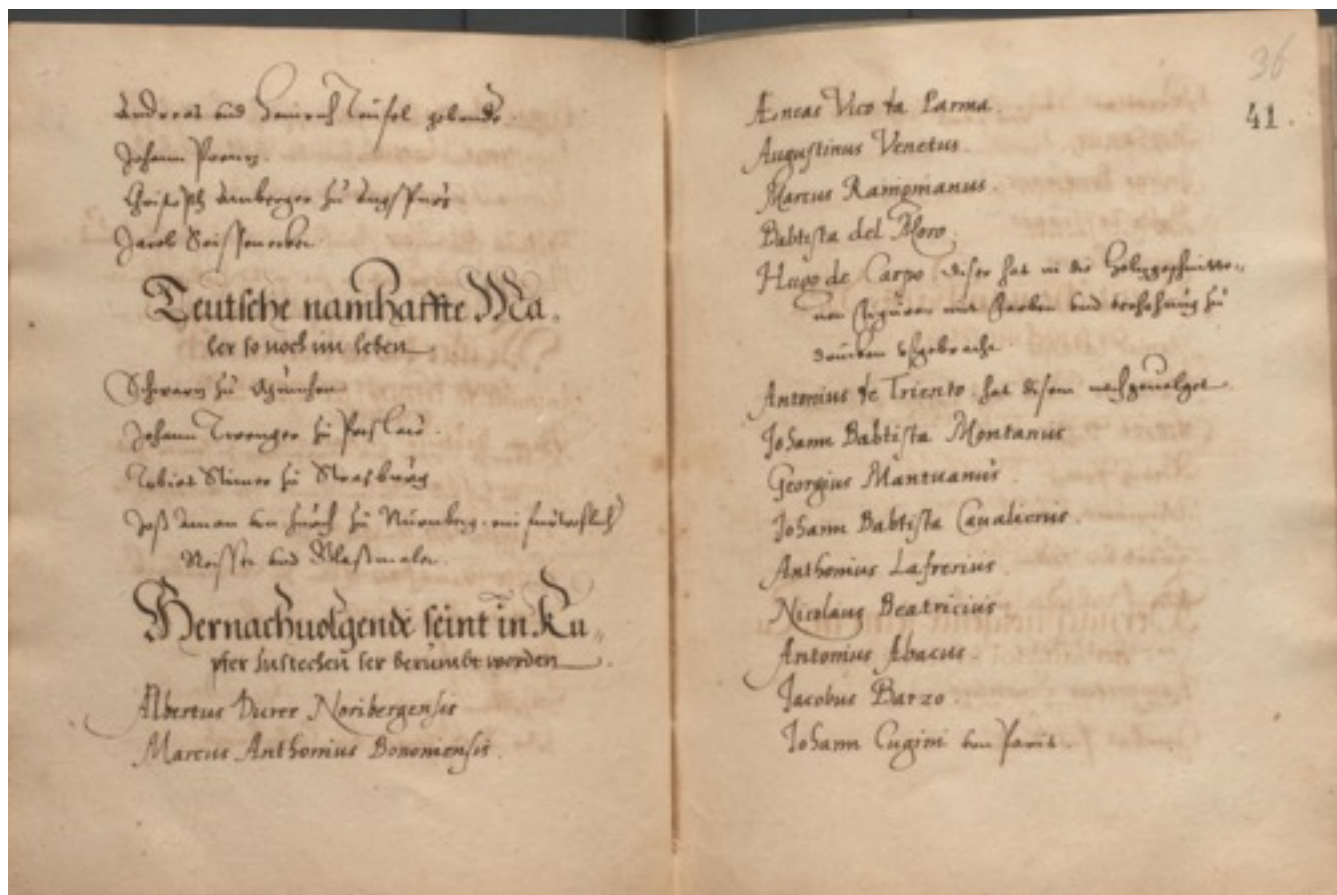 Andreas und Heinrich Teufel gebrüd
Johann
Christoph Amberger zu Augspurg
Jacob Seissenecker
Teutsche namhaffte Ma,
ler so noch im leben
Schwarz zu München
Johann Twenger zu Preslau.
Tobias Stimer zu Strasburg
Jost Aman von Zürich zu Nürnberg. ein fürtrefflich
Reisser und Glaßmaler.
Hernachuolgende seint in Ku,
pfer zustechen ser berümbt worden
Albertus Durer Noribergensis
Marcus Anthonius Bononiensis.
36
41.
Æneas Vico da Parma.
Augustinus Venetus.
Marcus Raingmanus.
Babtista del Moro.
Hugo de Carpo diser hat in die holzgeschnitte,,
nen figuren mit farben und erhohung zu
drucken
Antonius de Triento hat disem nachgeuolget.
Johann Babtista Montanus
Georgius Mantuanus.
Johann Babtista Caualierius.
Anthonius Lafrerius
Nicolaus Beatricius
Antonius Abacus.
Jacobus Barzo.
Johann Cugini von Paris.